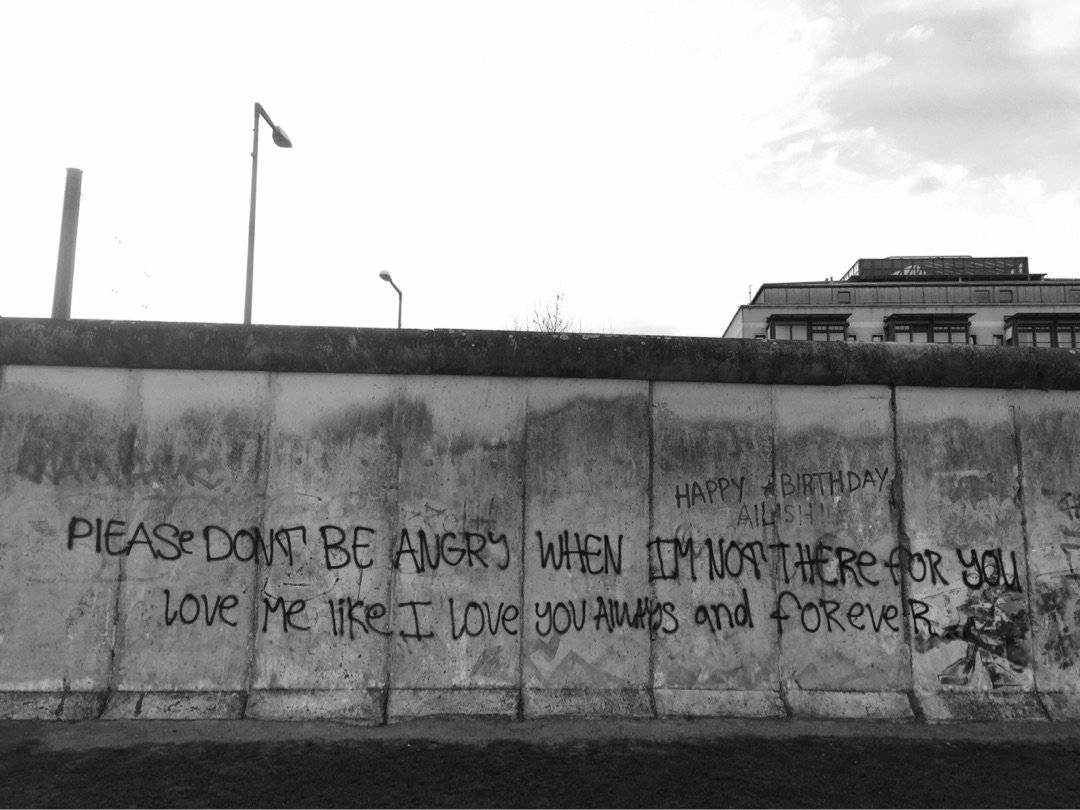 HAPPY BIRTHDAY
AILISH!!
PLEASe DONT BE ANGRY WHEN I'M NOT THERe fOR YOU
LOVe Me like I LOVe YOU AlWAYS and foReveR